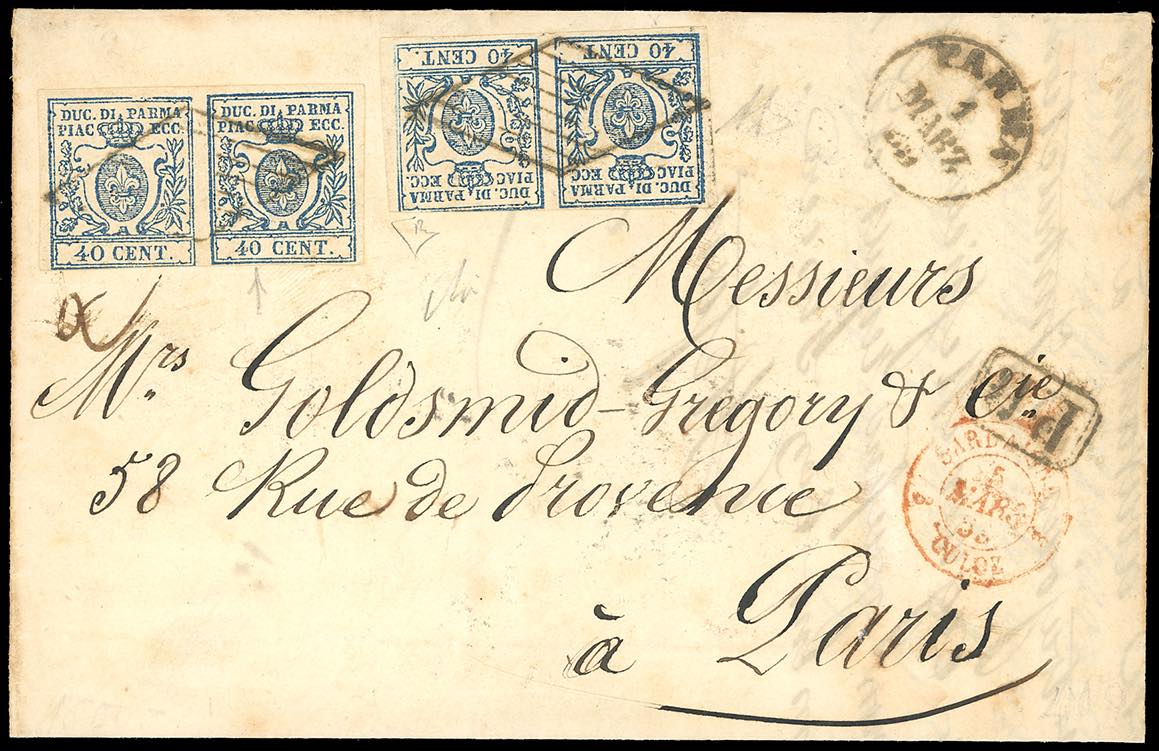 DUC. DI PARMA
PIAC ECC.
40 CENT.
DUC. DI PARMA
PIAC ECC.
40 CENT.
40 CENT.
DUC. DI PARMA
PIAC ECC.
40 CENT.
DUC. DI PARMA
PIAC ECC.
PARMA
1
MARZ.
Messieurs
Mrs Goldsmid-Gregory & Cie
58 Rue de Provence
à Paris
P.D.
MARS
CULOZ
R